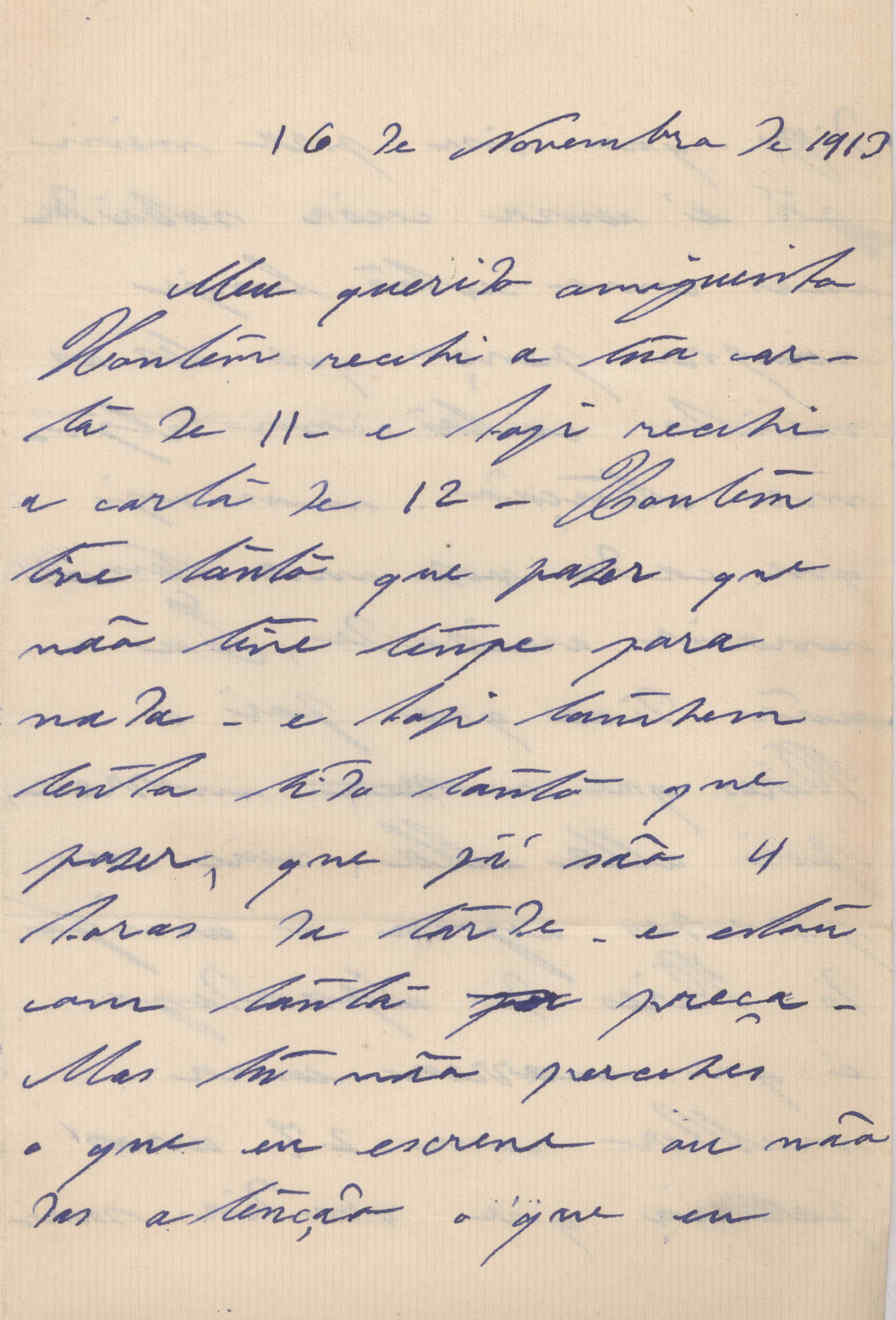 16 de Novembro de 1913
Meu querido amiguinho
Hontem recebi a tua car-
ta de 11 - e hoje recebi
a carta de 12 - Hontem
tive tanto que fazer que
não tive tempo para
nada - e hoje tambem
tenho tido tanto que
fazer, que já são 4
horas da tarde - e estou
com tanta preça -
Mas tu não percebes
o que eu escreve ou não
das atenção o que eu